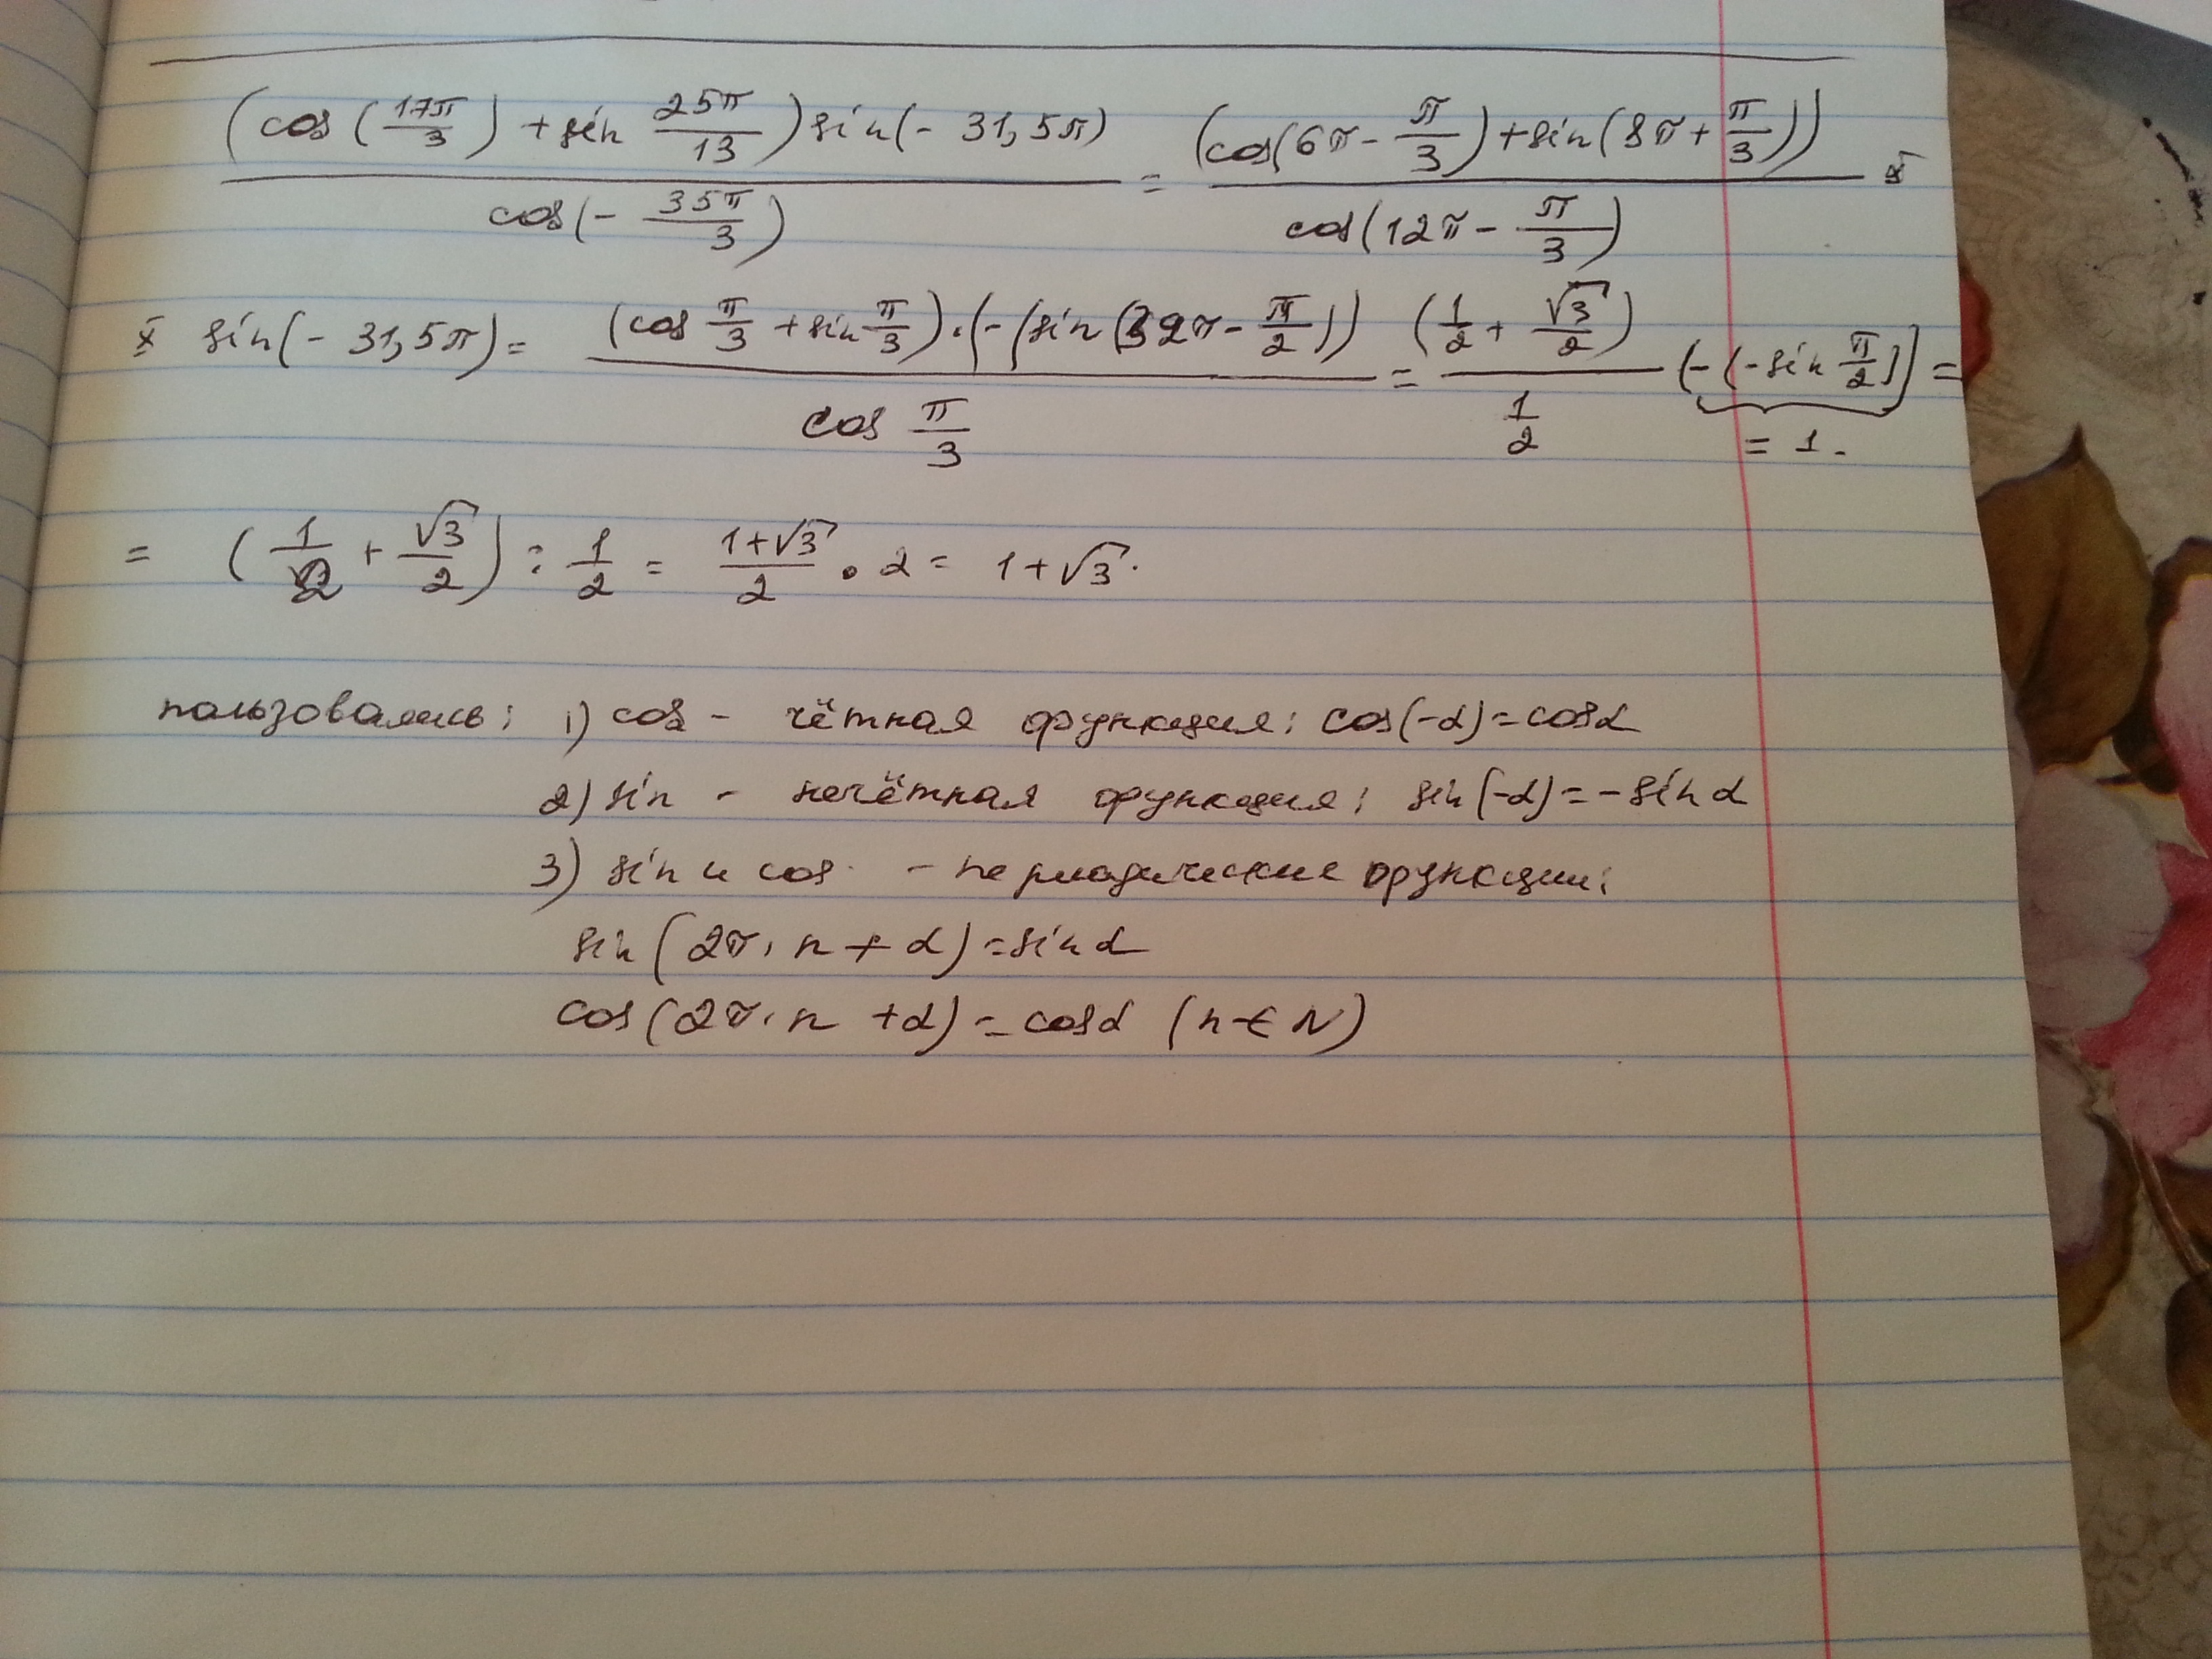 (cos (17π/3) + sin 25π/13) sin(- 31,5π) / cos(- 35π/3) = (cos(6π - π/3) + sin(8π + π/3)) / cos(12π - π/3) ×
× sin(- 31,5π) = (cos π/3 + sin π/3) · (-(sin (32π - π/2)) / cos π/3 = (1/2 + √3/2) / 1/2 (-(-sin π/2)) =
= 1.
= (1/2 + √3/2) : 1/2 = 1+√3/2 · 2 = 1+√3.
пользовались: 1) cos - чётная функция: cos(-α)=cosα
2) sin - нечётная функция; sin(-α)=-sinα
3) sin и cos - периодические функции:
sin(2π·n+α)=sinα
cos(2π·n+α)=cosα (n∈N)